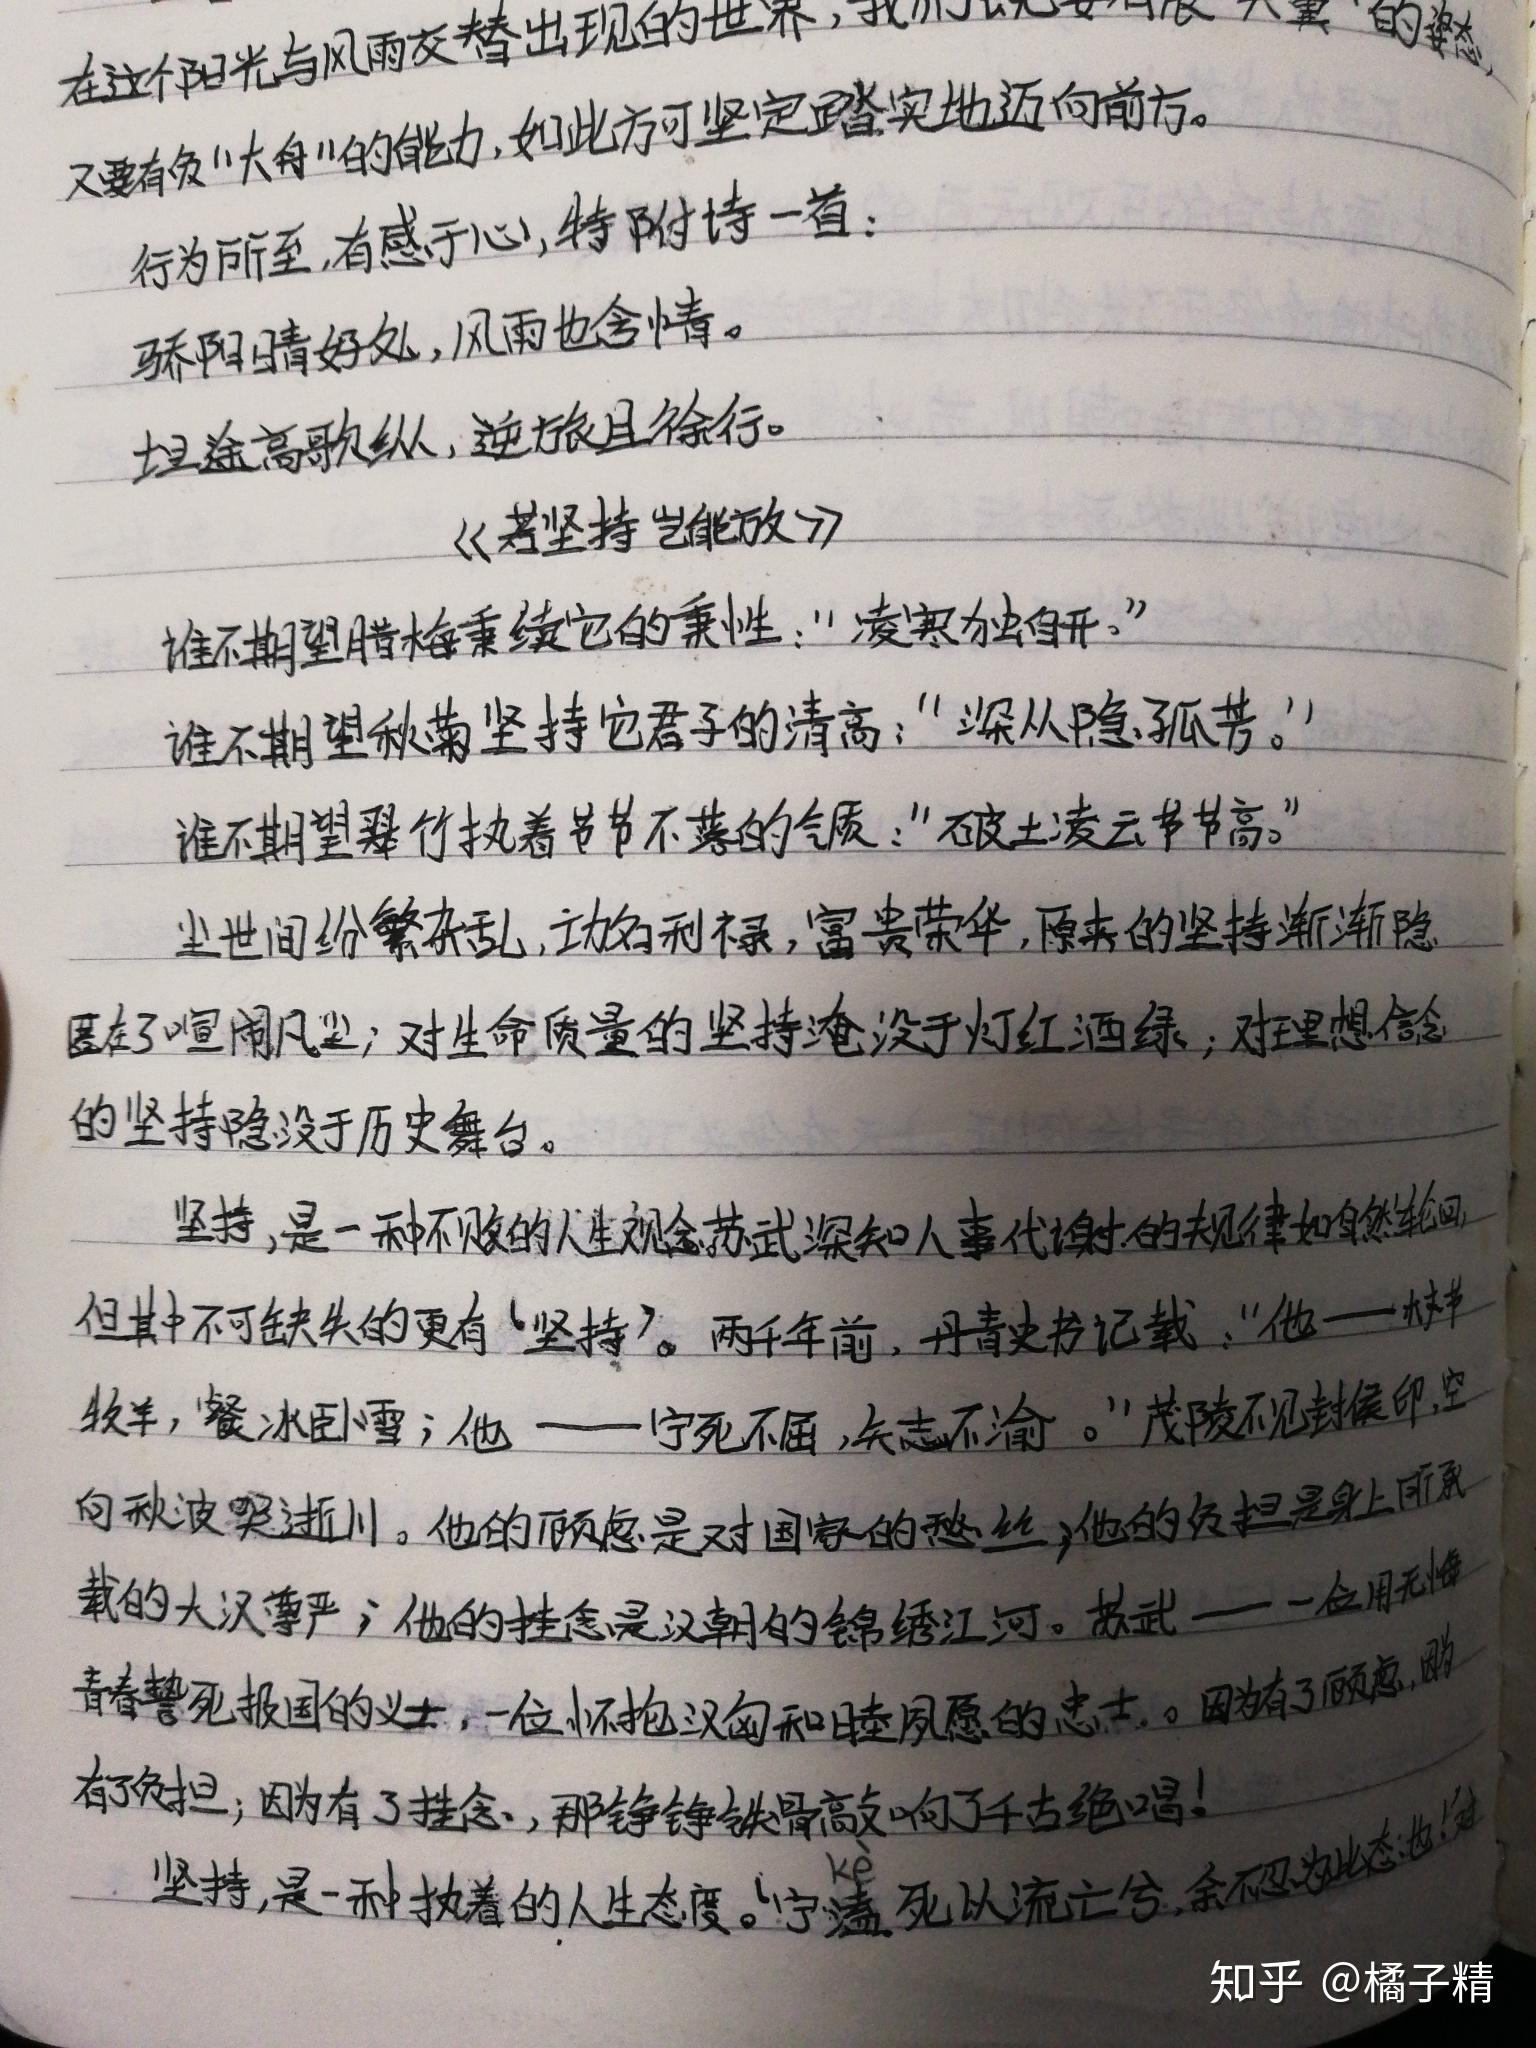 在这个阳光与风雨交替出现的世界，我们既要有展“大翼”的姿态，
又要有负“大舟”的能力，如此方可坚定踏实地迈向前方。
行为所至，有感于心，特附诗一首：
骄阳晴好处，风雨也含情。
坦途高歌纵，逆旅且徐行。
《若坚持岂能放》
谁不期望腊梅秉续它的秉性：“凌寒独自开。”
谁不期望秋菊坚持它君子的清高：“深丛隐孤芳。”
谁不期望翠竹执着节节不落的气质：“破土凌云节节高。”
尘世间纷繁杂乱，功名利禄，富贵荣华，原来的坚持渐渐隐
匿在了喧闹凡尘；对生命质量的坚持淹没于灯红酒绿；对理想信念
的坚持隐没于历史舞台。
坚持，是一种不败的人生观念。苏武深知人事代谢的规律如自然轮回，
但其中不可缺失的更有‘坚持’。两千年前，丹青史书记载：“他——杖节
牧羊，餐冰卧雪；他——宁死不屈，矢志不渝。”茂陵不见封侯印，空
向秋波哭逝川。他的顾虑是对国家的愁丝；他的负担是身上所承
载的大汉尊严；他的挂念是汉朝的锦绣江河。苏武——一位用无悔
青春誓死报国的义士，一位怀抱汉匈和睦夙愿的忠士。因为有了顾虑，因为
有了负担；因为有了挂念，那铮铮铁骨高敲响了千古绝唱！
kè
坚持，是一种执着的人生态度。‘宁溘死以流亡兮，余不忍为此态也！’
知乎 @橘子精